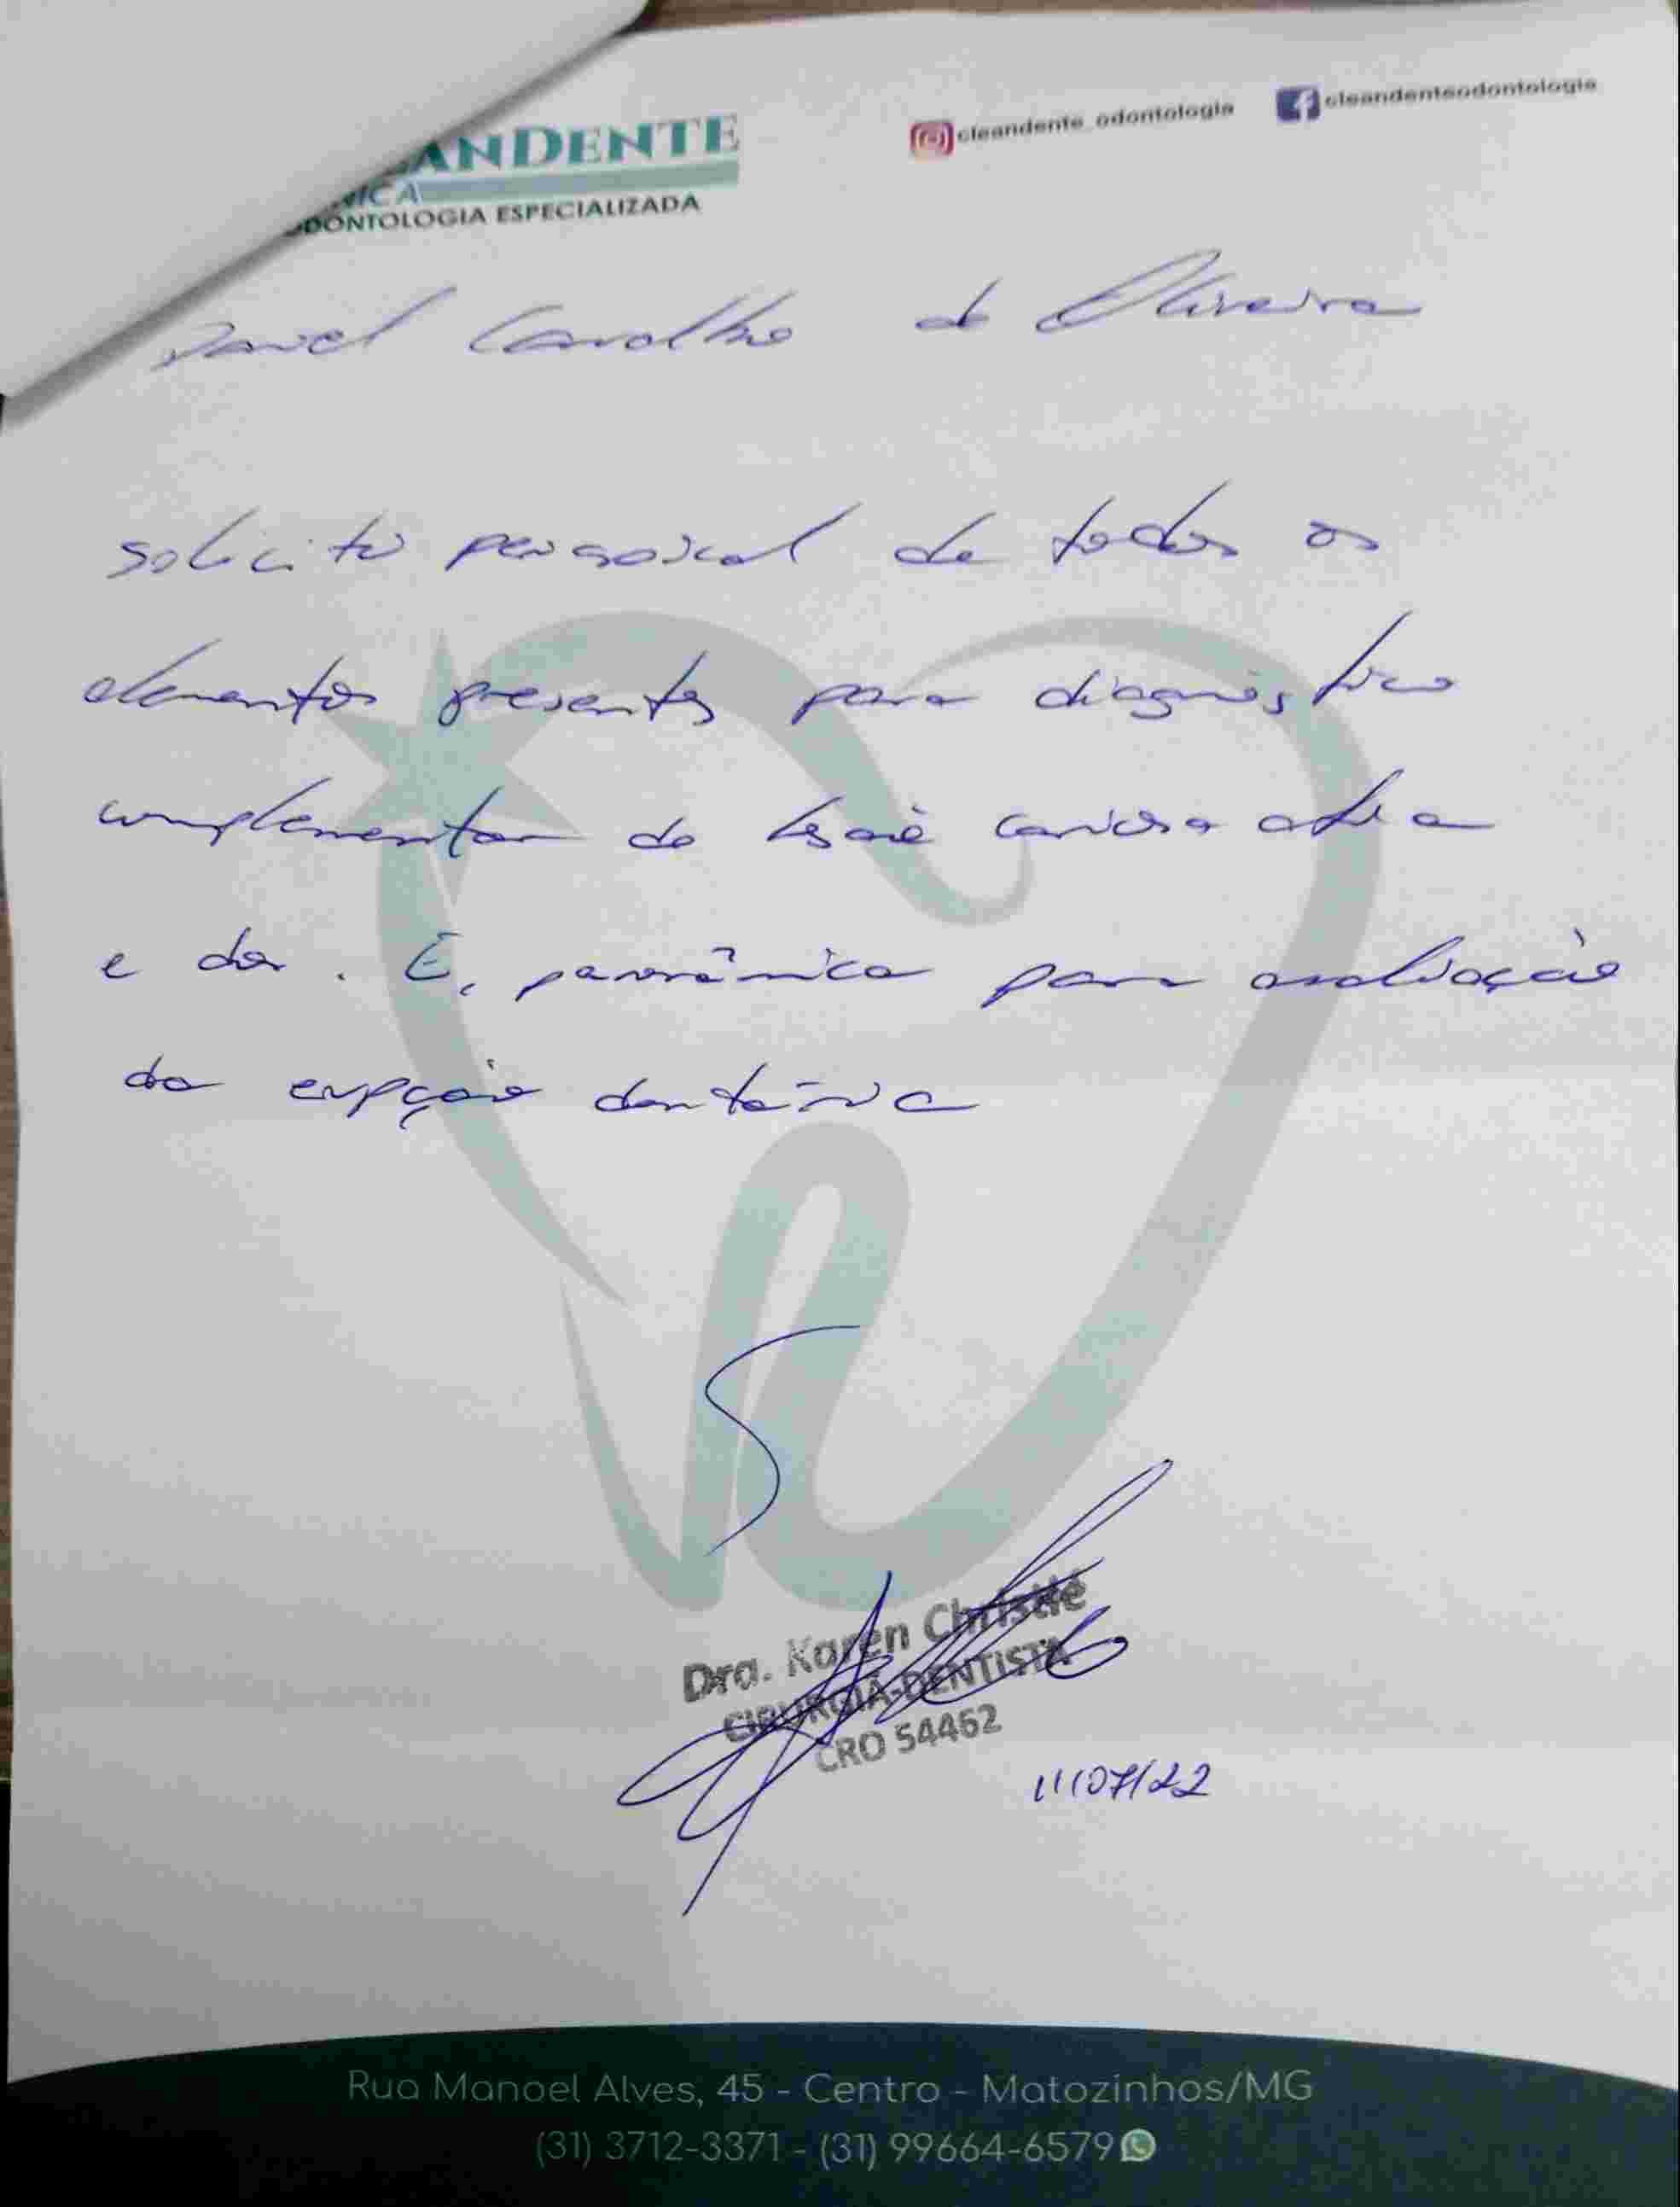 cleandente_odontologia cleandenteodontologia
ANDENTE
NICA
ODONTOLOGIA ESPECIALIZADA
Daniel Carvalho de Oliveira
solicito periapical de todos os
elementos presentes para diagnóstico
complementar de lesão cariosa ativa
e dor. E, panorâmica para avaliação
da erupção dentária
Dra. Karen Christie
CIRURGIÃ-DENTISTA
CRO 54462
11/07/22
Rua Manoel Alves, 45 - Centro - Matozinhos/MG
(31) 3712-3371 - (31) 99664-6579